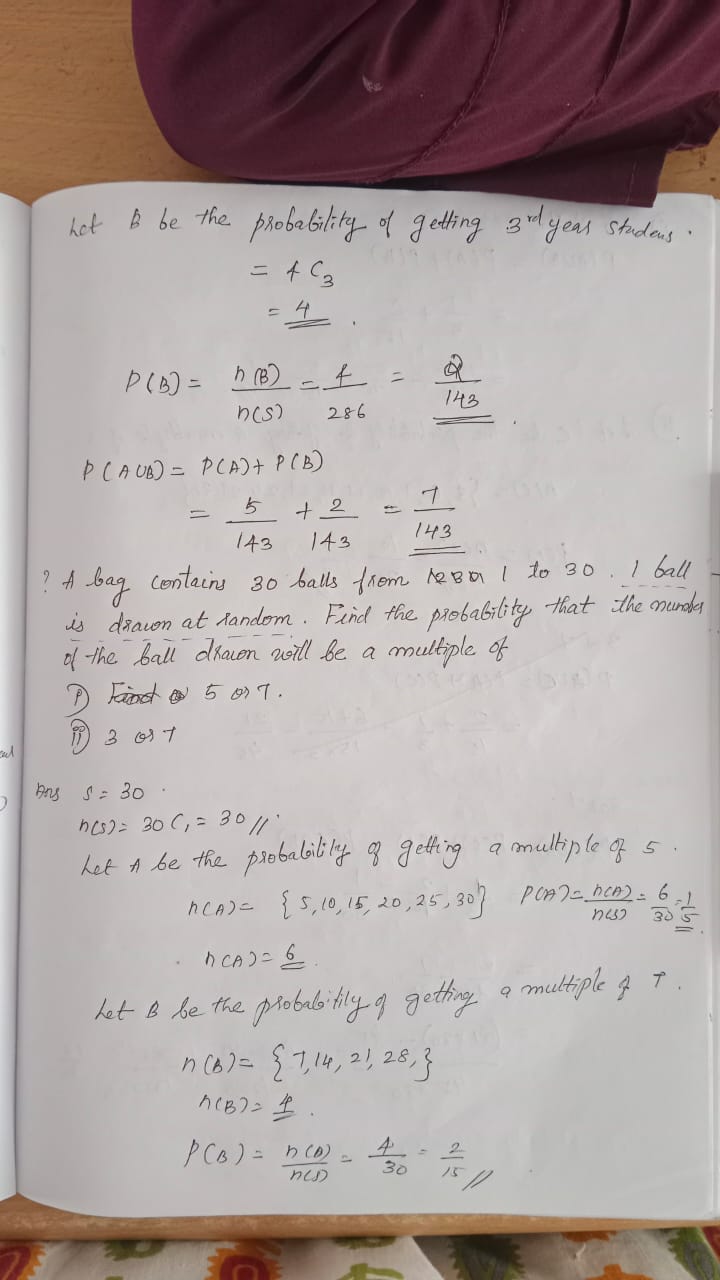 Let B be the probability of getting 3rd year studens.
= 4 C3
= 4.
P(B) = n(B)/n(S) = 4/286 = 2/143.
P(AUB) = P(A) + P(B)
= 5/143 + 2/143 = 7/143.
? A bag contains 30 balls from 1 to 30. 1 ball
is drawn at random. Find the probability that the number
of the ball drawn will be a multiple of
i) 5 or 7.
ii) 3 or 7
Ans S = 30.
n(S) = 30 C1 = 30 //.
Let A be the probability of getting a multiple of 5.
n(A) = {5, 10, 15, 20, 25, 30} P(A) = n(A)/n(S) = 6/30 = 1/5.
n(A) = 6.
Let B be the probability of getting a multiple of 7.
n(B) = {7, 14, 21, 28,}
n(B) = 4.
P(B) = n(B)/n(S) = 4/30 = 2/15 //